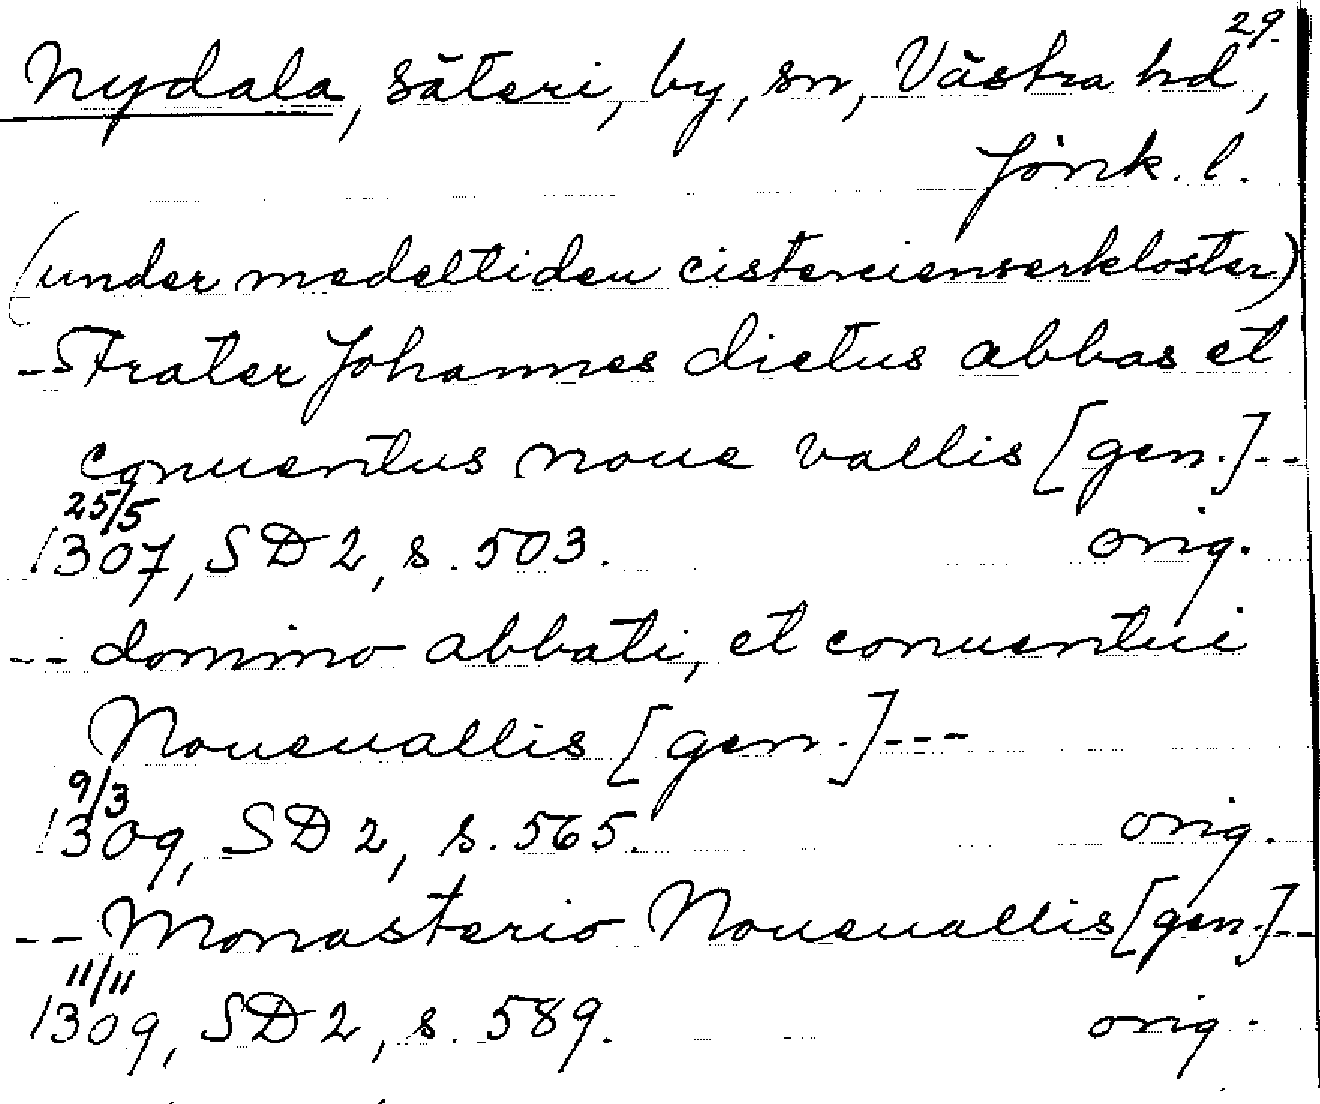 29.
Nydala, säteri, by, sn, Västra hd,
Jönk. l.
(under medeltiden cistercienserkloster)
- Frater Johannes dictus abbas et
conuentus noue vallis [gen.] --
25/5
1307, SD 2, s. 503. orig.
-- domino abbati, et conuentui
Noueuallis [gen.] ---
9/3
1309, SD 2, s. 565. orig.
-- Monasterio Noueuallis [gen.] --
11/11
1309, SD 2, s. 589. orig.